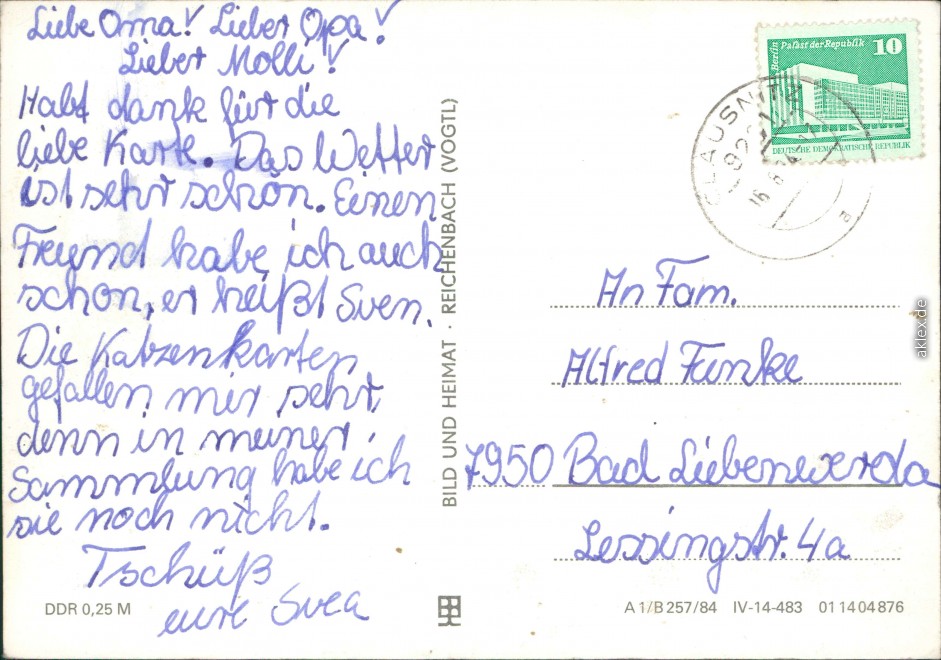 Liebe Oma! Lieber Opa!
Lieber Molli!
Habt dank für die
liebe Karte. Das Wetter
ist sehr schön. Einen
Freund habe ich auch
schon, er heißt Sven.
Die Katzenkarten
gefallen mir sehr,
denn in meiner
Sammlung habe ich
sie noch nicht.
Tschüß
eure Svea
DDR 0,25 M
BILD UND HEIMAT · REICHENBACH (VOGTL)
Berlin Palast der Republik 10
DEUTSCHE DEMOKRATISCHE REPUBLIK
CLAUSNITZ
a
An Fam.
Alfred Funke
7950 Bad Liebenwerda
Lessingstr. 4a
A 1/B 257/84 IV-14-483 01 14 04 876
aklex.de